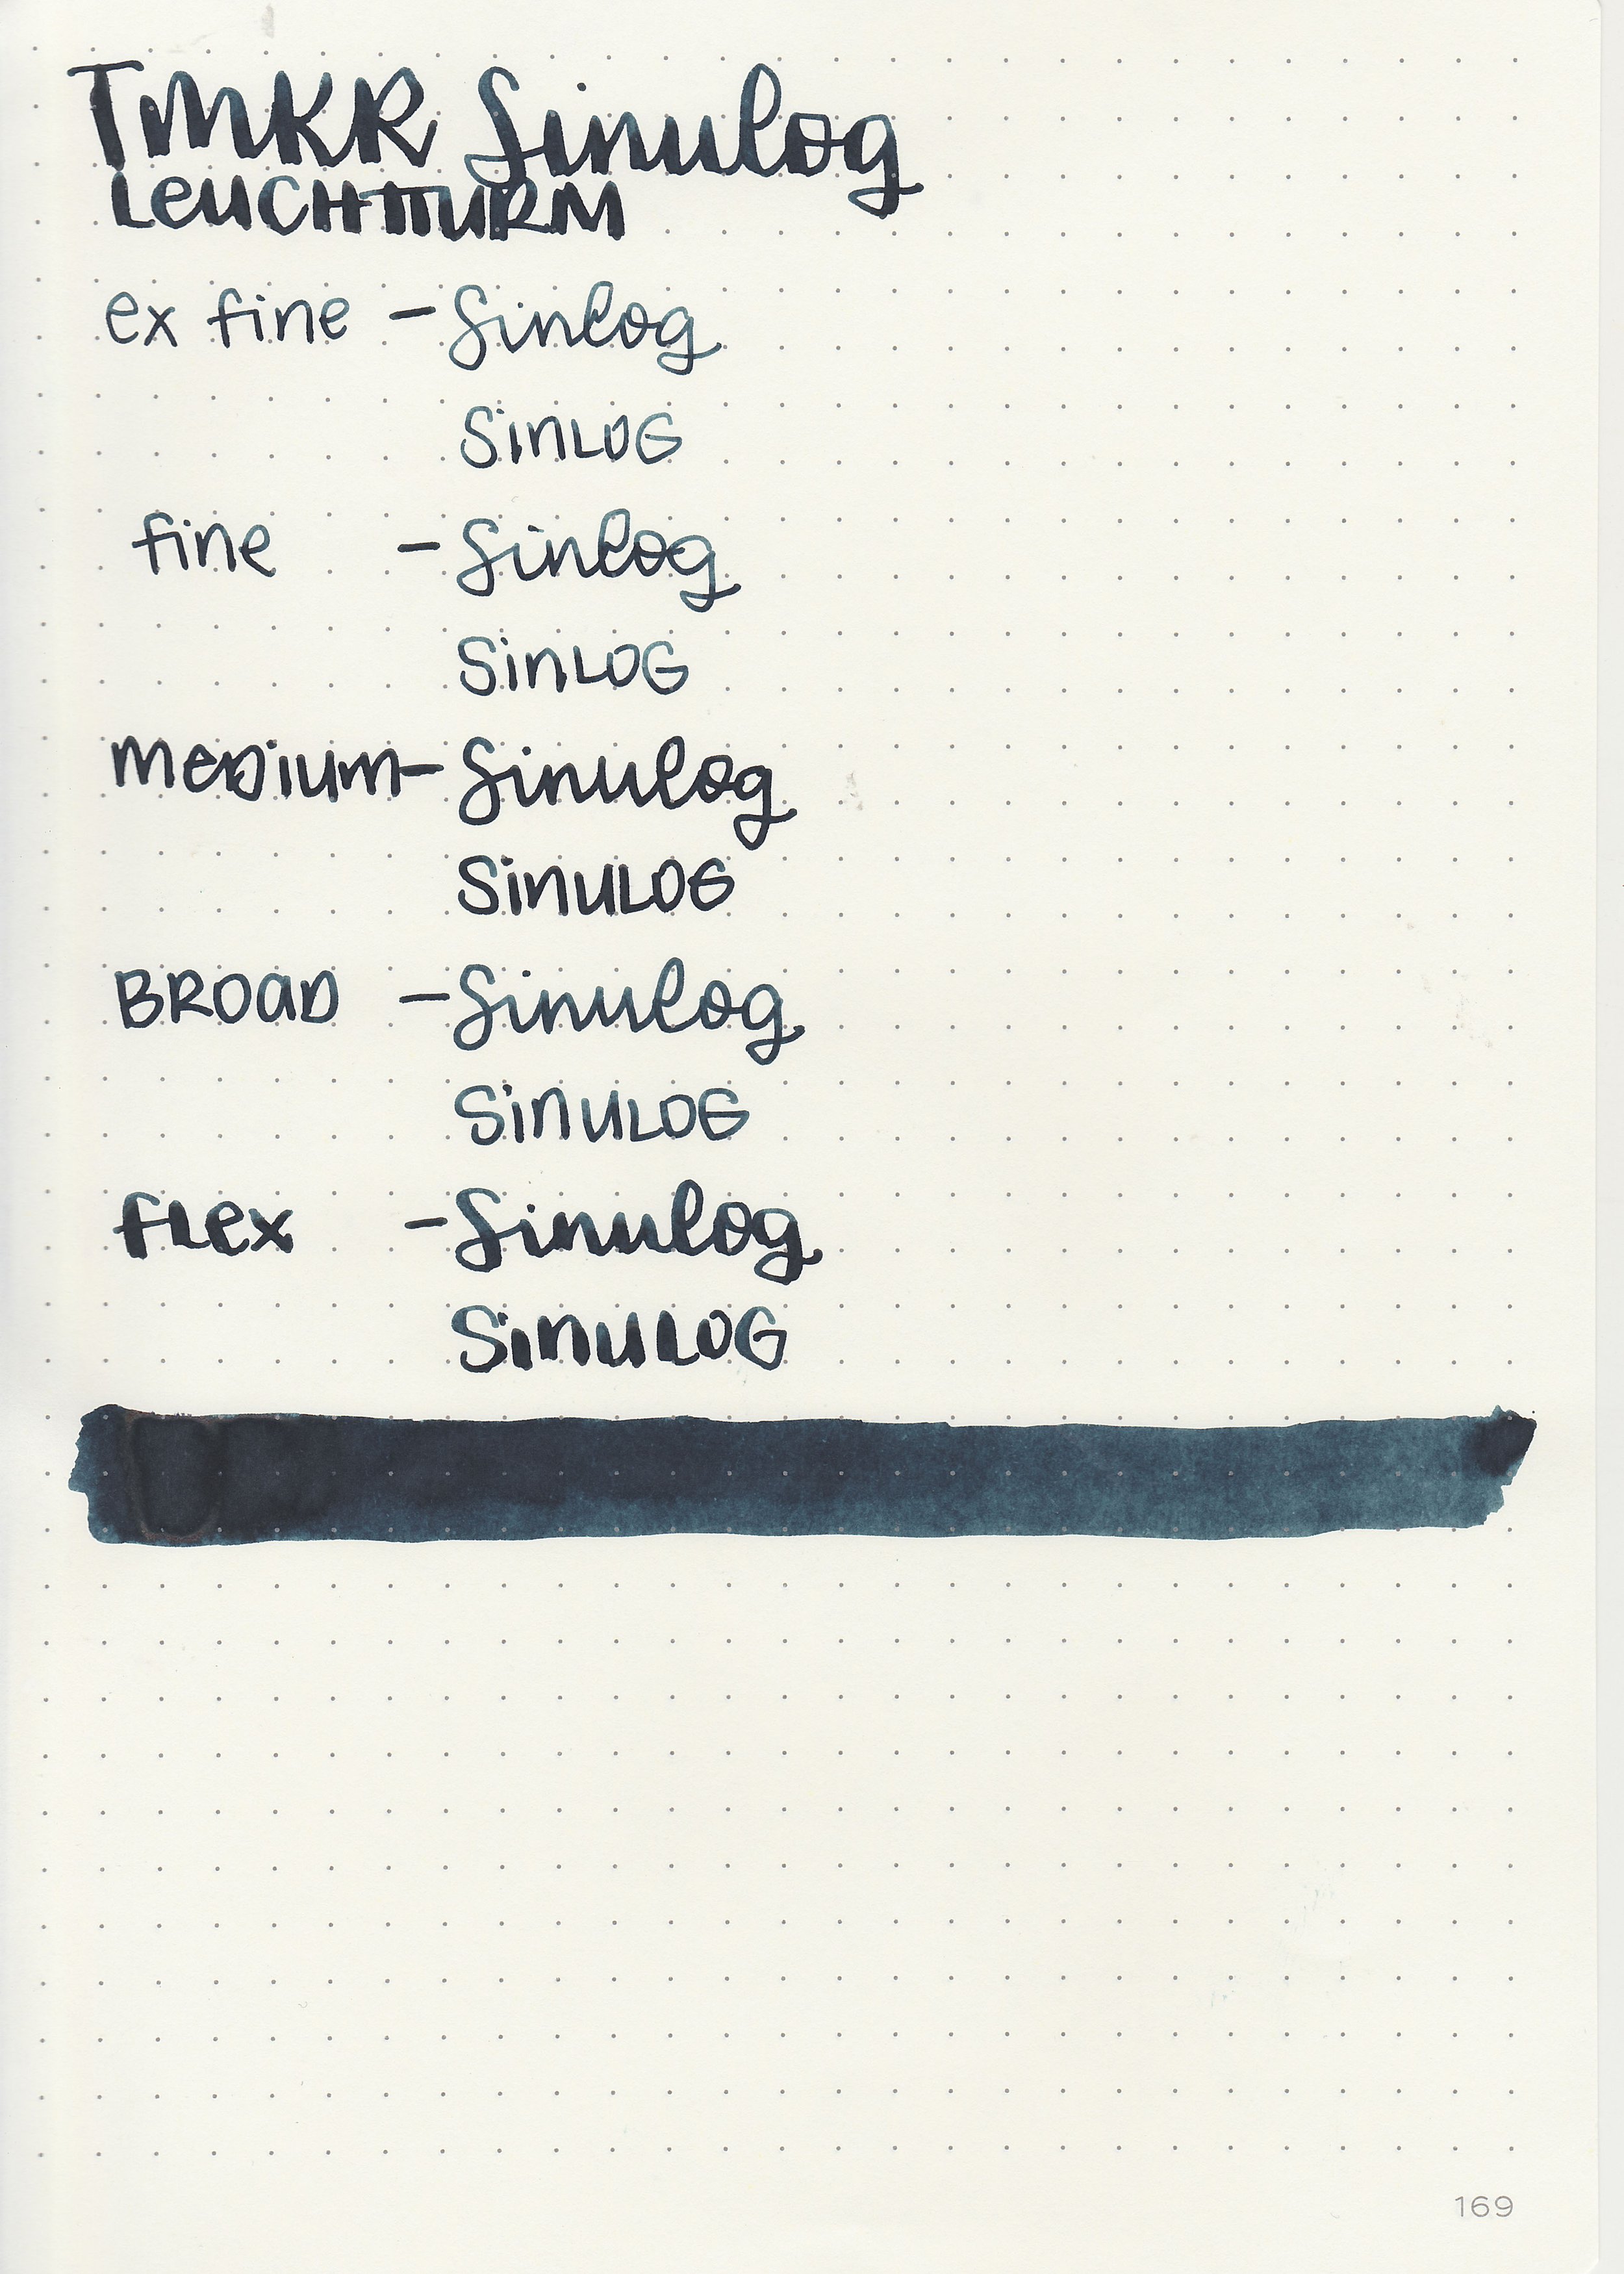 TMKR Sinulog
LEUCHTTURM
ex fine - Sinlog
SinLOG
fine - Sinlog
SinLOG
meDium - Sinulog
SinULOG
BROaD - Sinulog
SinULOG
fLex - Sinulog
SinULOG
169